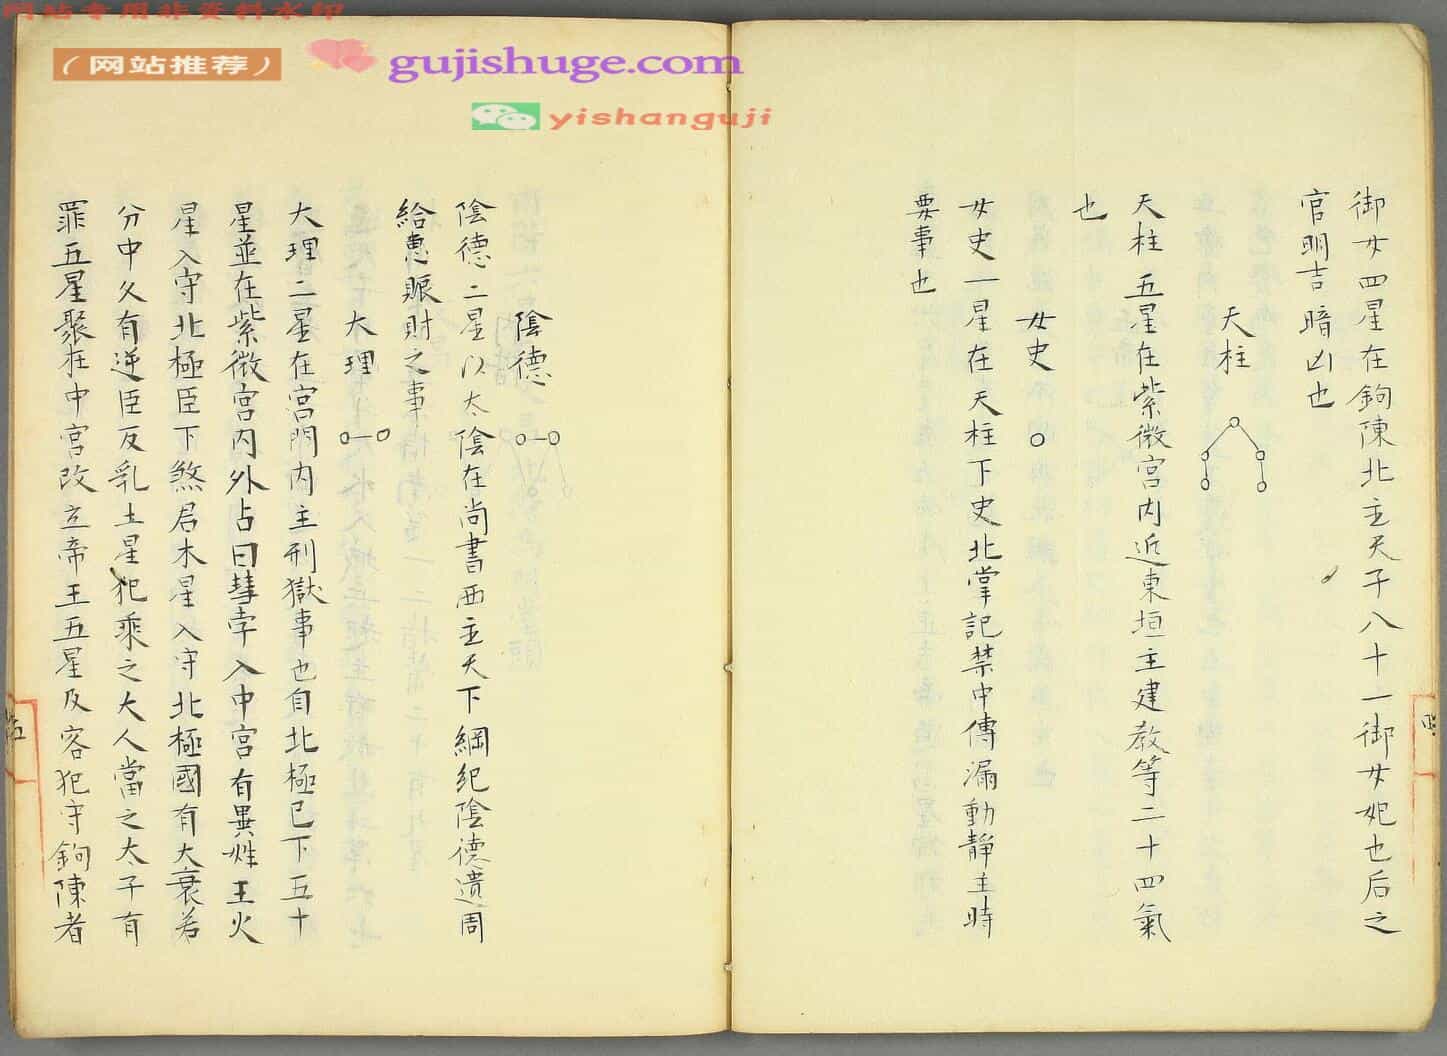 网站专用非资料水印
（网站推荐）
gujishuge.com
yishanguji
御女四星在鉤陳北主天子八十一御女妃也后之
官明吉暗凶也
天柱
天柱五星在紫微宮內近東垣主建教等二十四氣
也
女史
女史一星在天柱下史北掌記禁中傳漏動靜主時
要事也
陰德
陰德二星以太陰在尚書西主天下綱紀陰德遺周
給惠賑財之事
大理
大理二星在宮門內主刑獄事也自北極已下五十
星並在紫微宮內外占曰彗孛入中宮有異姓王火
星入守北極臣下煞君木星入守北極國有大衰若
分中久有逆臣反乳土星犯乘之大人當之太子有
罪五星聚在中宮改立帝王五星及客犯守鉤陳者
五